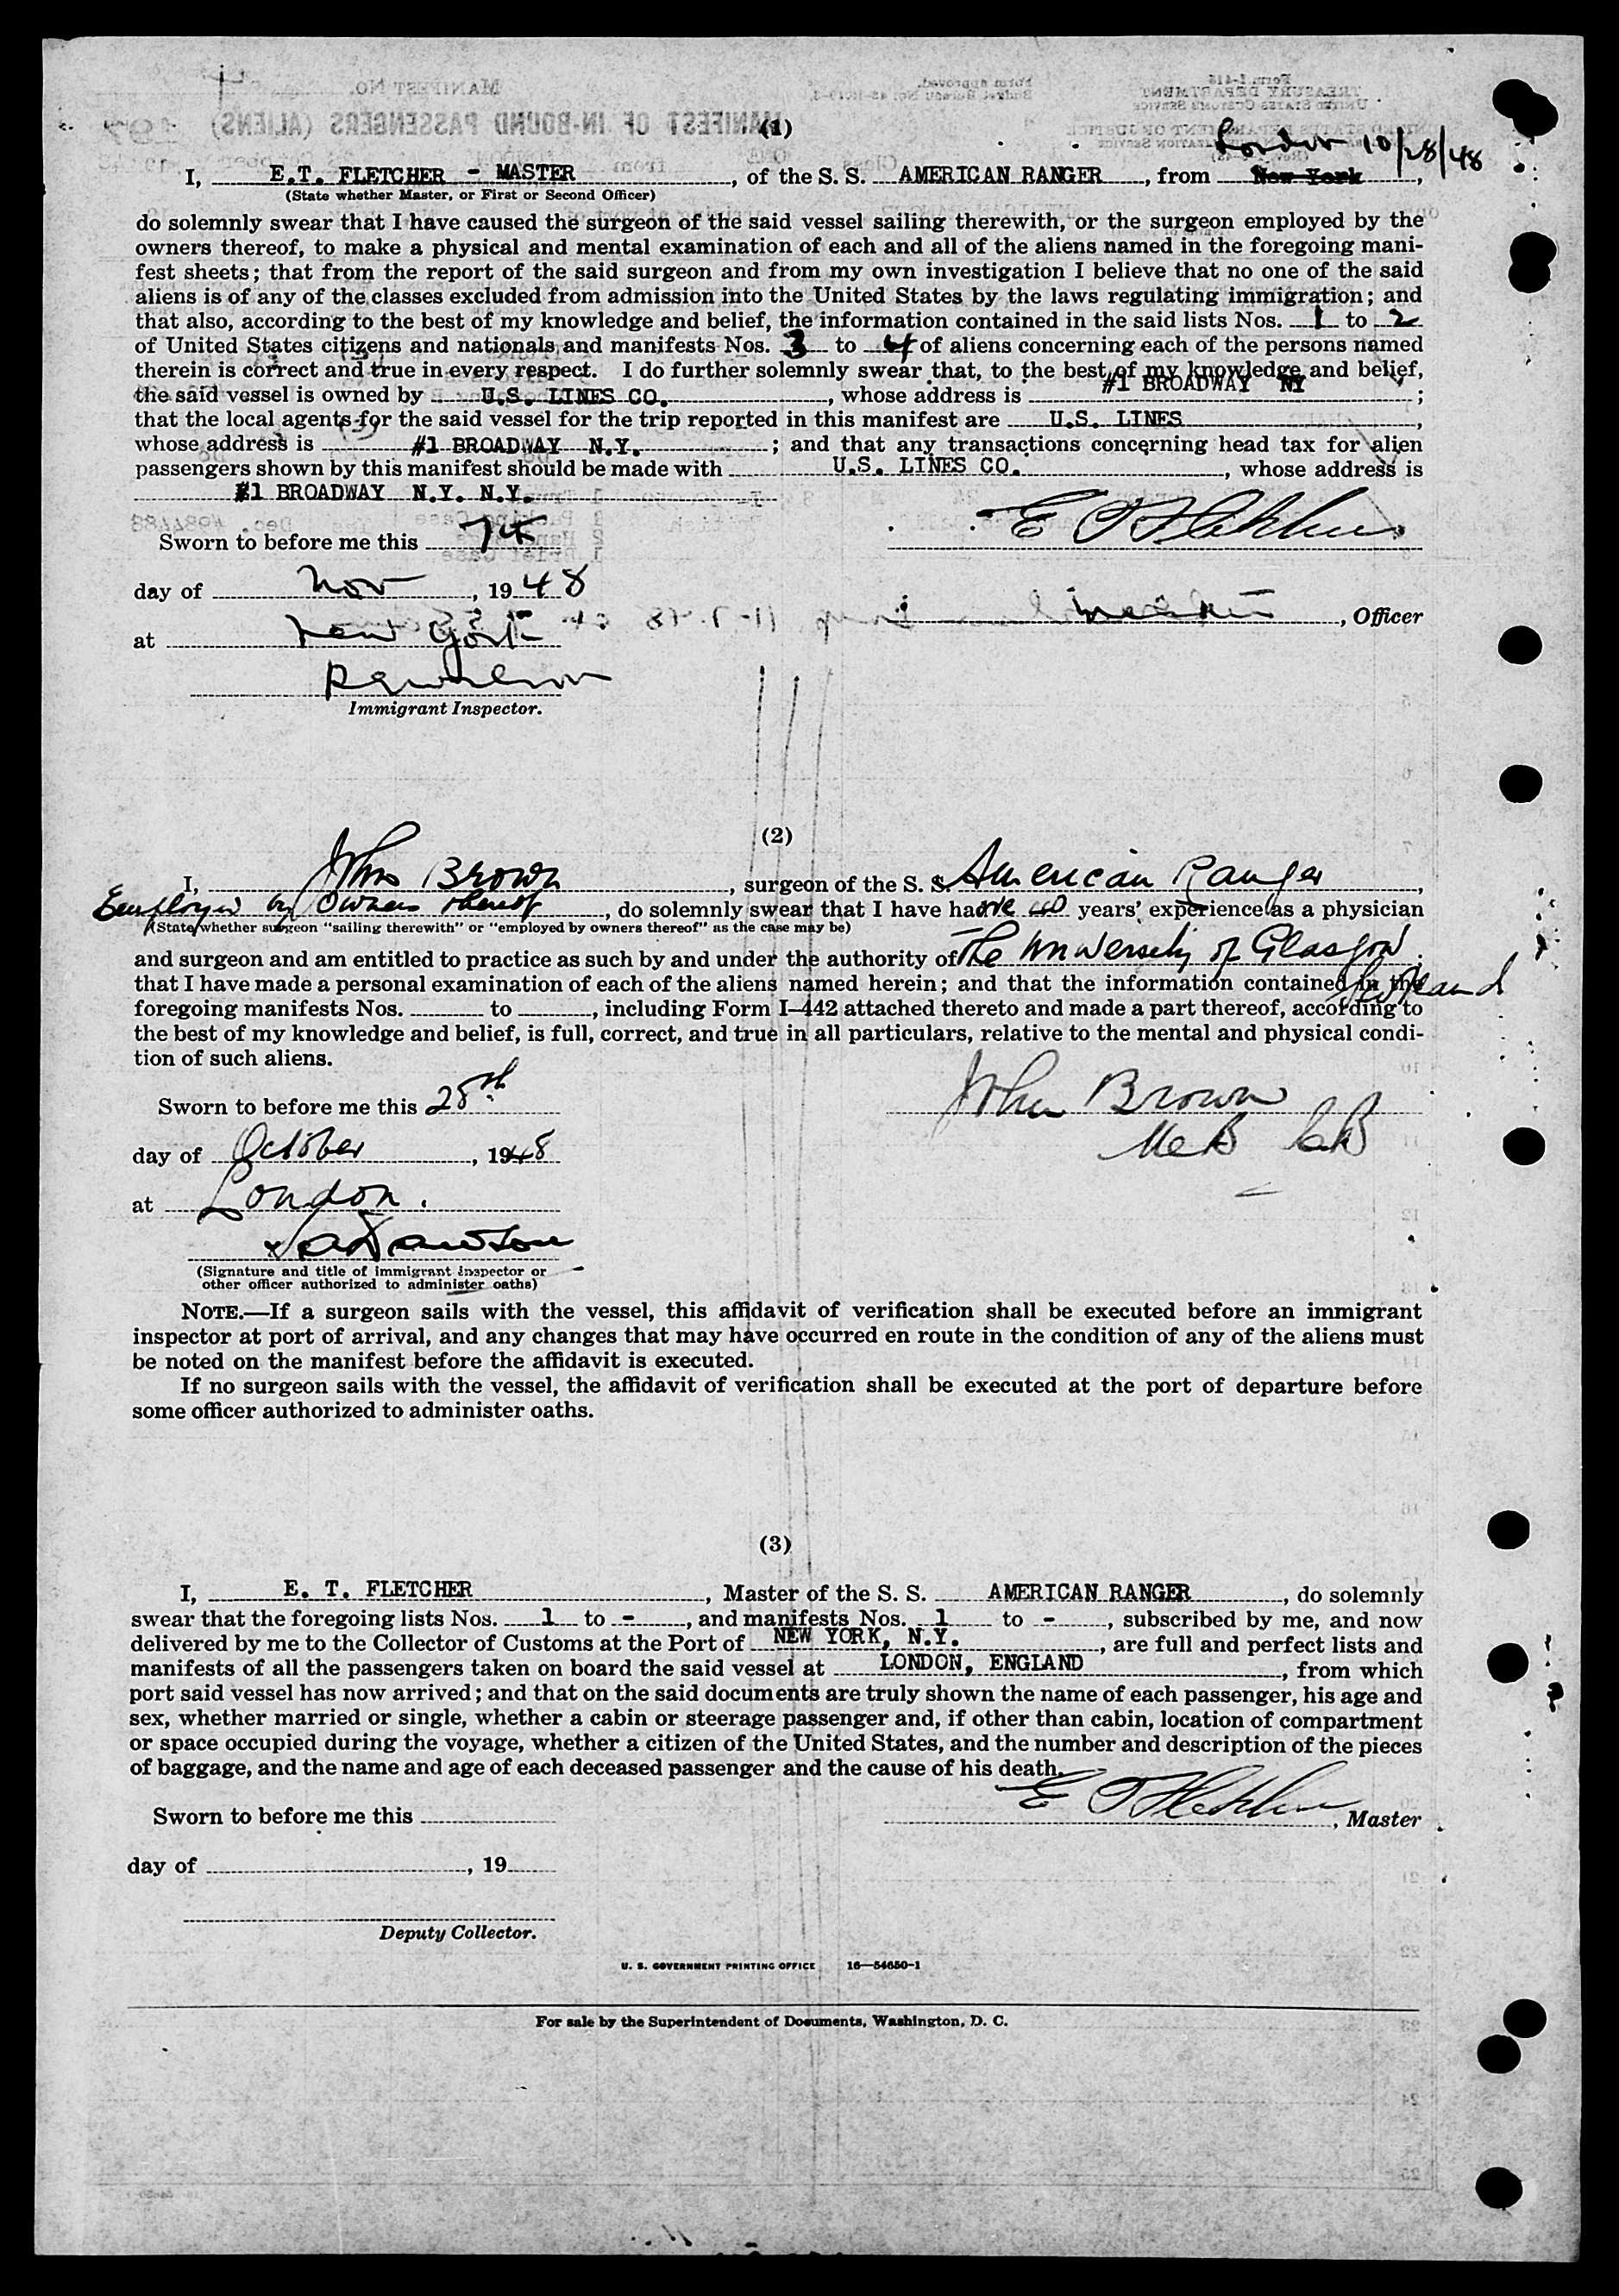 (1)
London 10/28/48
I, E.T. FLETCHER - MASTER, of the S. S. AMERICAN RANGER, from New York,
(State whether Master, or First or Second Officer)
do solemnly swear that I have caused the surgeon of the said vessel sailing therewith, or the surgeon employed by the
owners thereof, to make a physical and mental examination of each and all of the aliens named in the foregoing mani-
fest sheets; that from the report of the said surgeon and from my own investigation I believe that no one of the said
aliens is of any of the classes excluded from admission into the United States by the laws regulating immigration; and
that also, according to the best of my knowledge and belief, the information contained in the said lists Nos. 1 to 2
of United States citizens and nationals and manifests Nos. 3 to 4 of aliens concerning each of the persons named
therein is correct and true in every respect. I do further solemnly swear that, to the best of my knowledge and belief,
the said vessel is owned by U.S. LINES CO., whose address is #1 BROADWAY NY;
that the local agents for the said vessel for the trip reported in this manifest are U.S. LINES,
whose address is #1 BROADWAY N.Y.; and that any transactions concerning head tax for alien
passengers shown by this manifest should be made with U.S. LINES CO., whose address is
#1 BROADWAY N.Y. N.Y.
E T Fletcher
Sworn to before me this 7th
day of Nov, 1948
Master, Officer
at New York
Immigrant Inspector.
(2)
I, John Brown, surgeon of the S. S. American Ranger,
Employed by Owners thereof, do solemnly swear that I have had 40 years' experience as a physician
(State whether surgeon "sailing therewith" or "employed by owners thereof" as the case may be)
and surgeon and am entitled to practice as such by and under the authority of The University of Glasgow Scotland;
that I have made a personal examination of each of the aliens named herein; and that the information contained in the
foregoing manifests Nos. to , including Form I-442 attached thereto and made a part thereof, according to
the best of my knowledge and belief, is full, correct, and true in all particulars, relative to the mental and physical condi-
tion of such aliens.
Sworn to before me this 28th
John Brown
day of October, 1948
at London.
(Signature and title of immigrant inspector or
other officer authorized to administer oaths)
NOTE.—If a surgeon sails with the vessel, this affidavit of verification shall be executed before an immigrant
inspector at port of arrival, and any changes that may have occurred en route in the condition of any of the aliens must
be noted on the manifest before the affidavit is executed.
If no surgeon sails with the vessel, the affidavit of verification shall be executed at the port of departure before
some officer authorized to administer oaths.
(3)
I, E. T. FLETCHER, Master of the S. S. AMERICAN RANGER, do solemnly
swear that the foregoing lists Nos. 1 to -, and manifests Nos. 1 to -, subscribed by me, and now
delivered by me to the Collector of Customs at the Port of NEW YORK, N.Y., are full and perfect lists and
manifests of all the passengers taken on board the said vessel at LONDON, ENGLAND, from which
port said vessel has now arrived; and that on the said documents are truly shown the name of each passenger, his age and
sex, whether married or single, whether a cabin or steerage passenger and, if other than cabin, location of compartment
or space occupied during the voyage, whether a citizen of the United States, and the number and description of the pieces
of baggage, and the name and age of each deceased passenger and the cause of his death.
E T Fletcher, Master
Sworn to before me this
day of , 19
Deputy Collector.
U. S. GOVERNMENT PRINTING OFFICE 16—54650-1
For sale by the Superintendent of Documents, Washington, D. C.